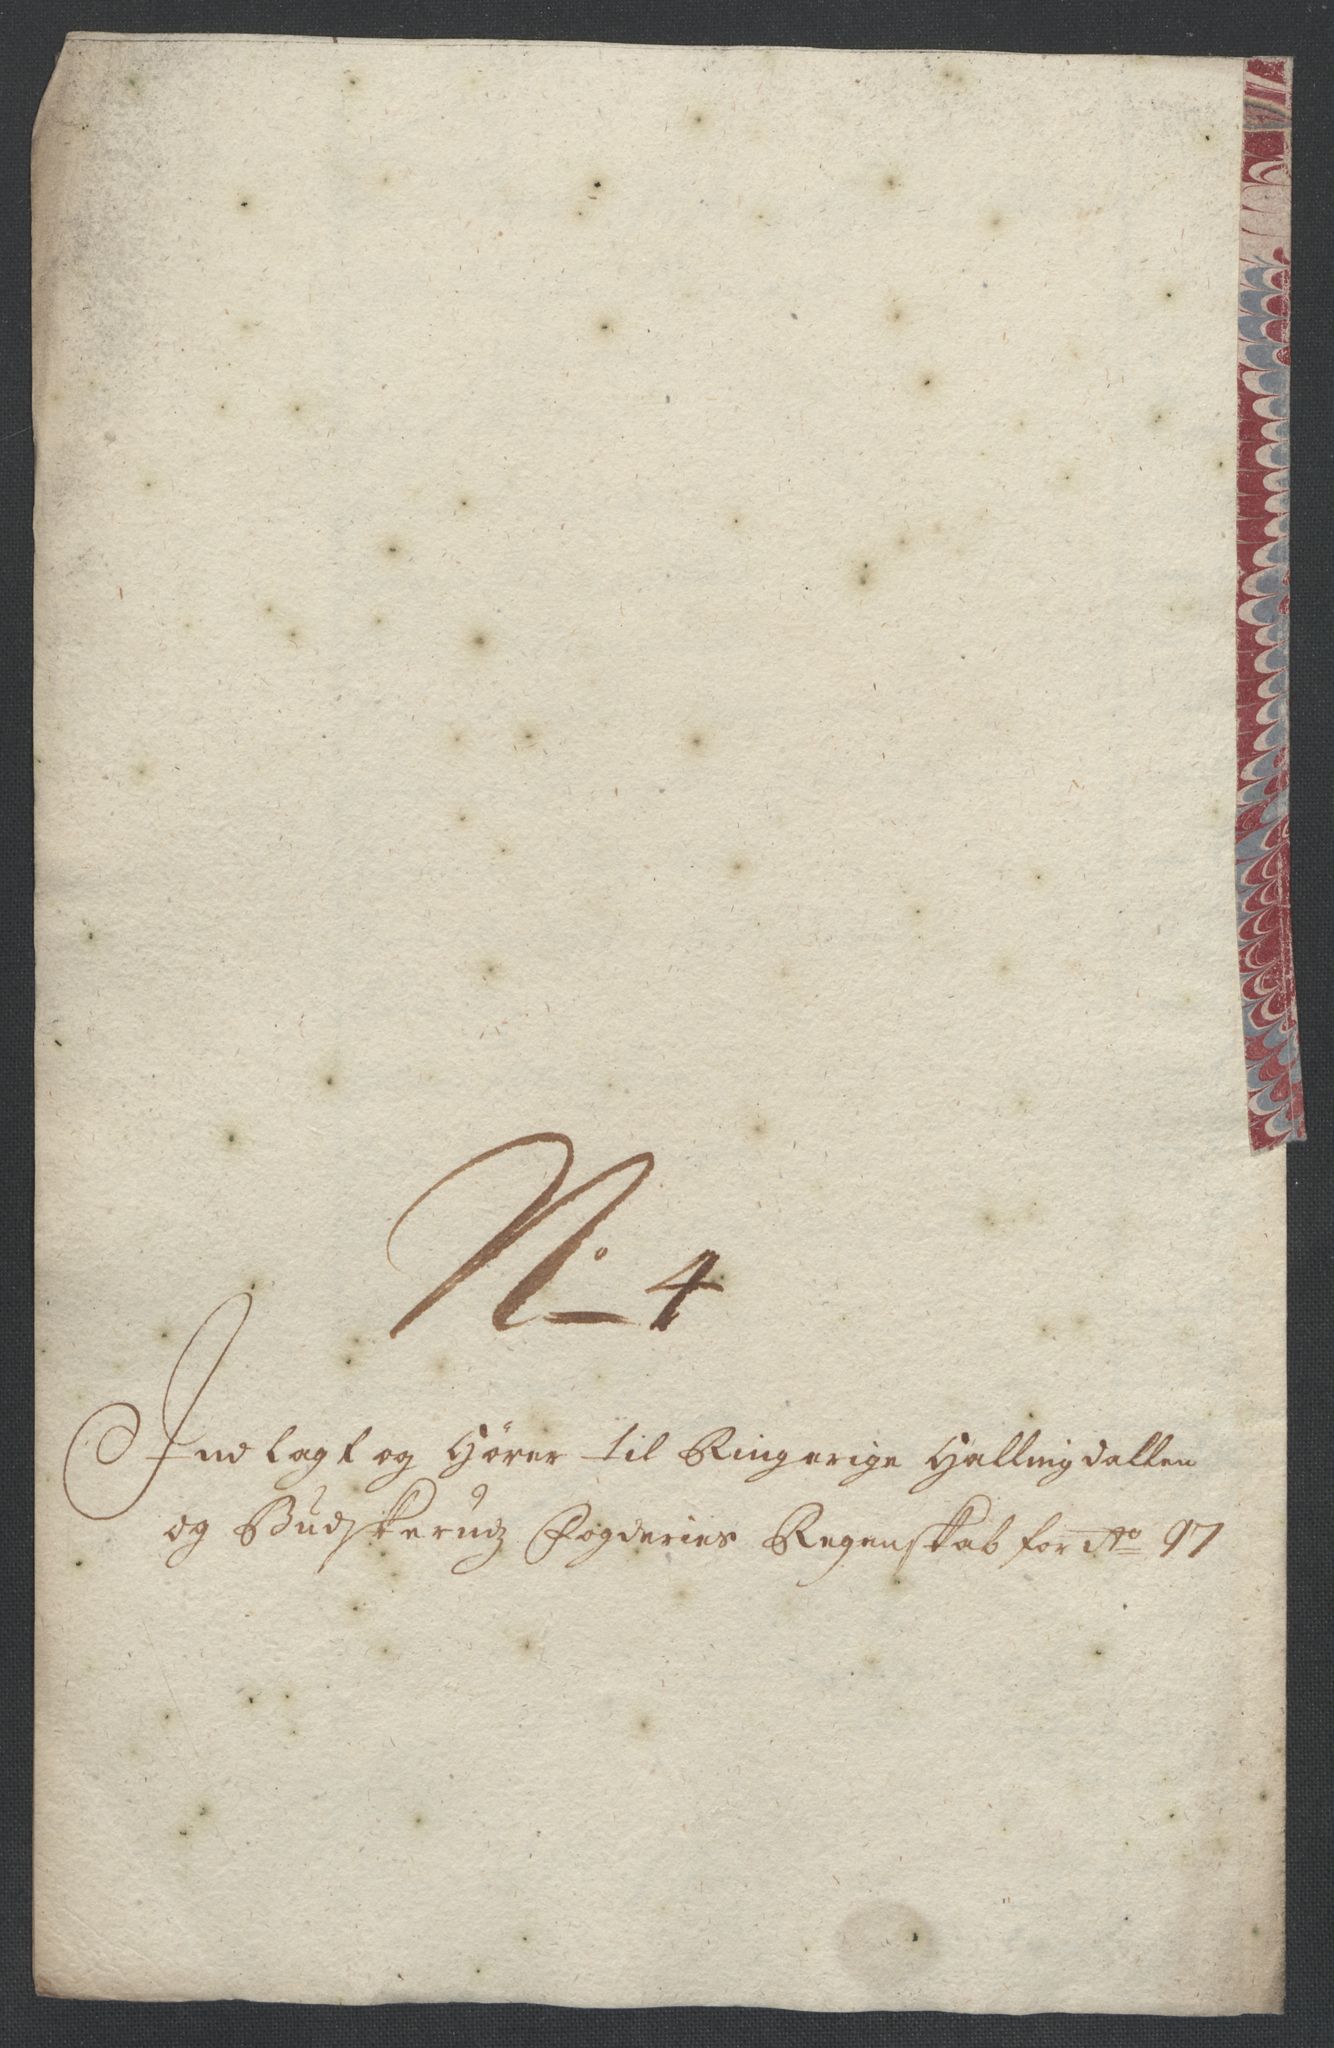 No 4
Indlagt og Hører til Ringerige Hallingdallen
og Budskerudz Fogderies Regenskab for Ao 97